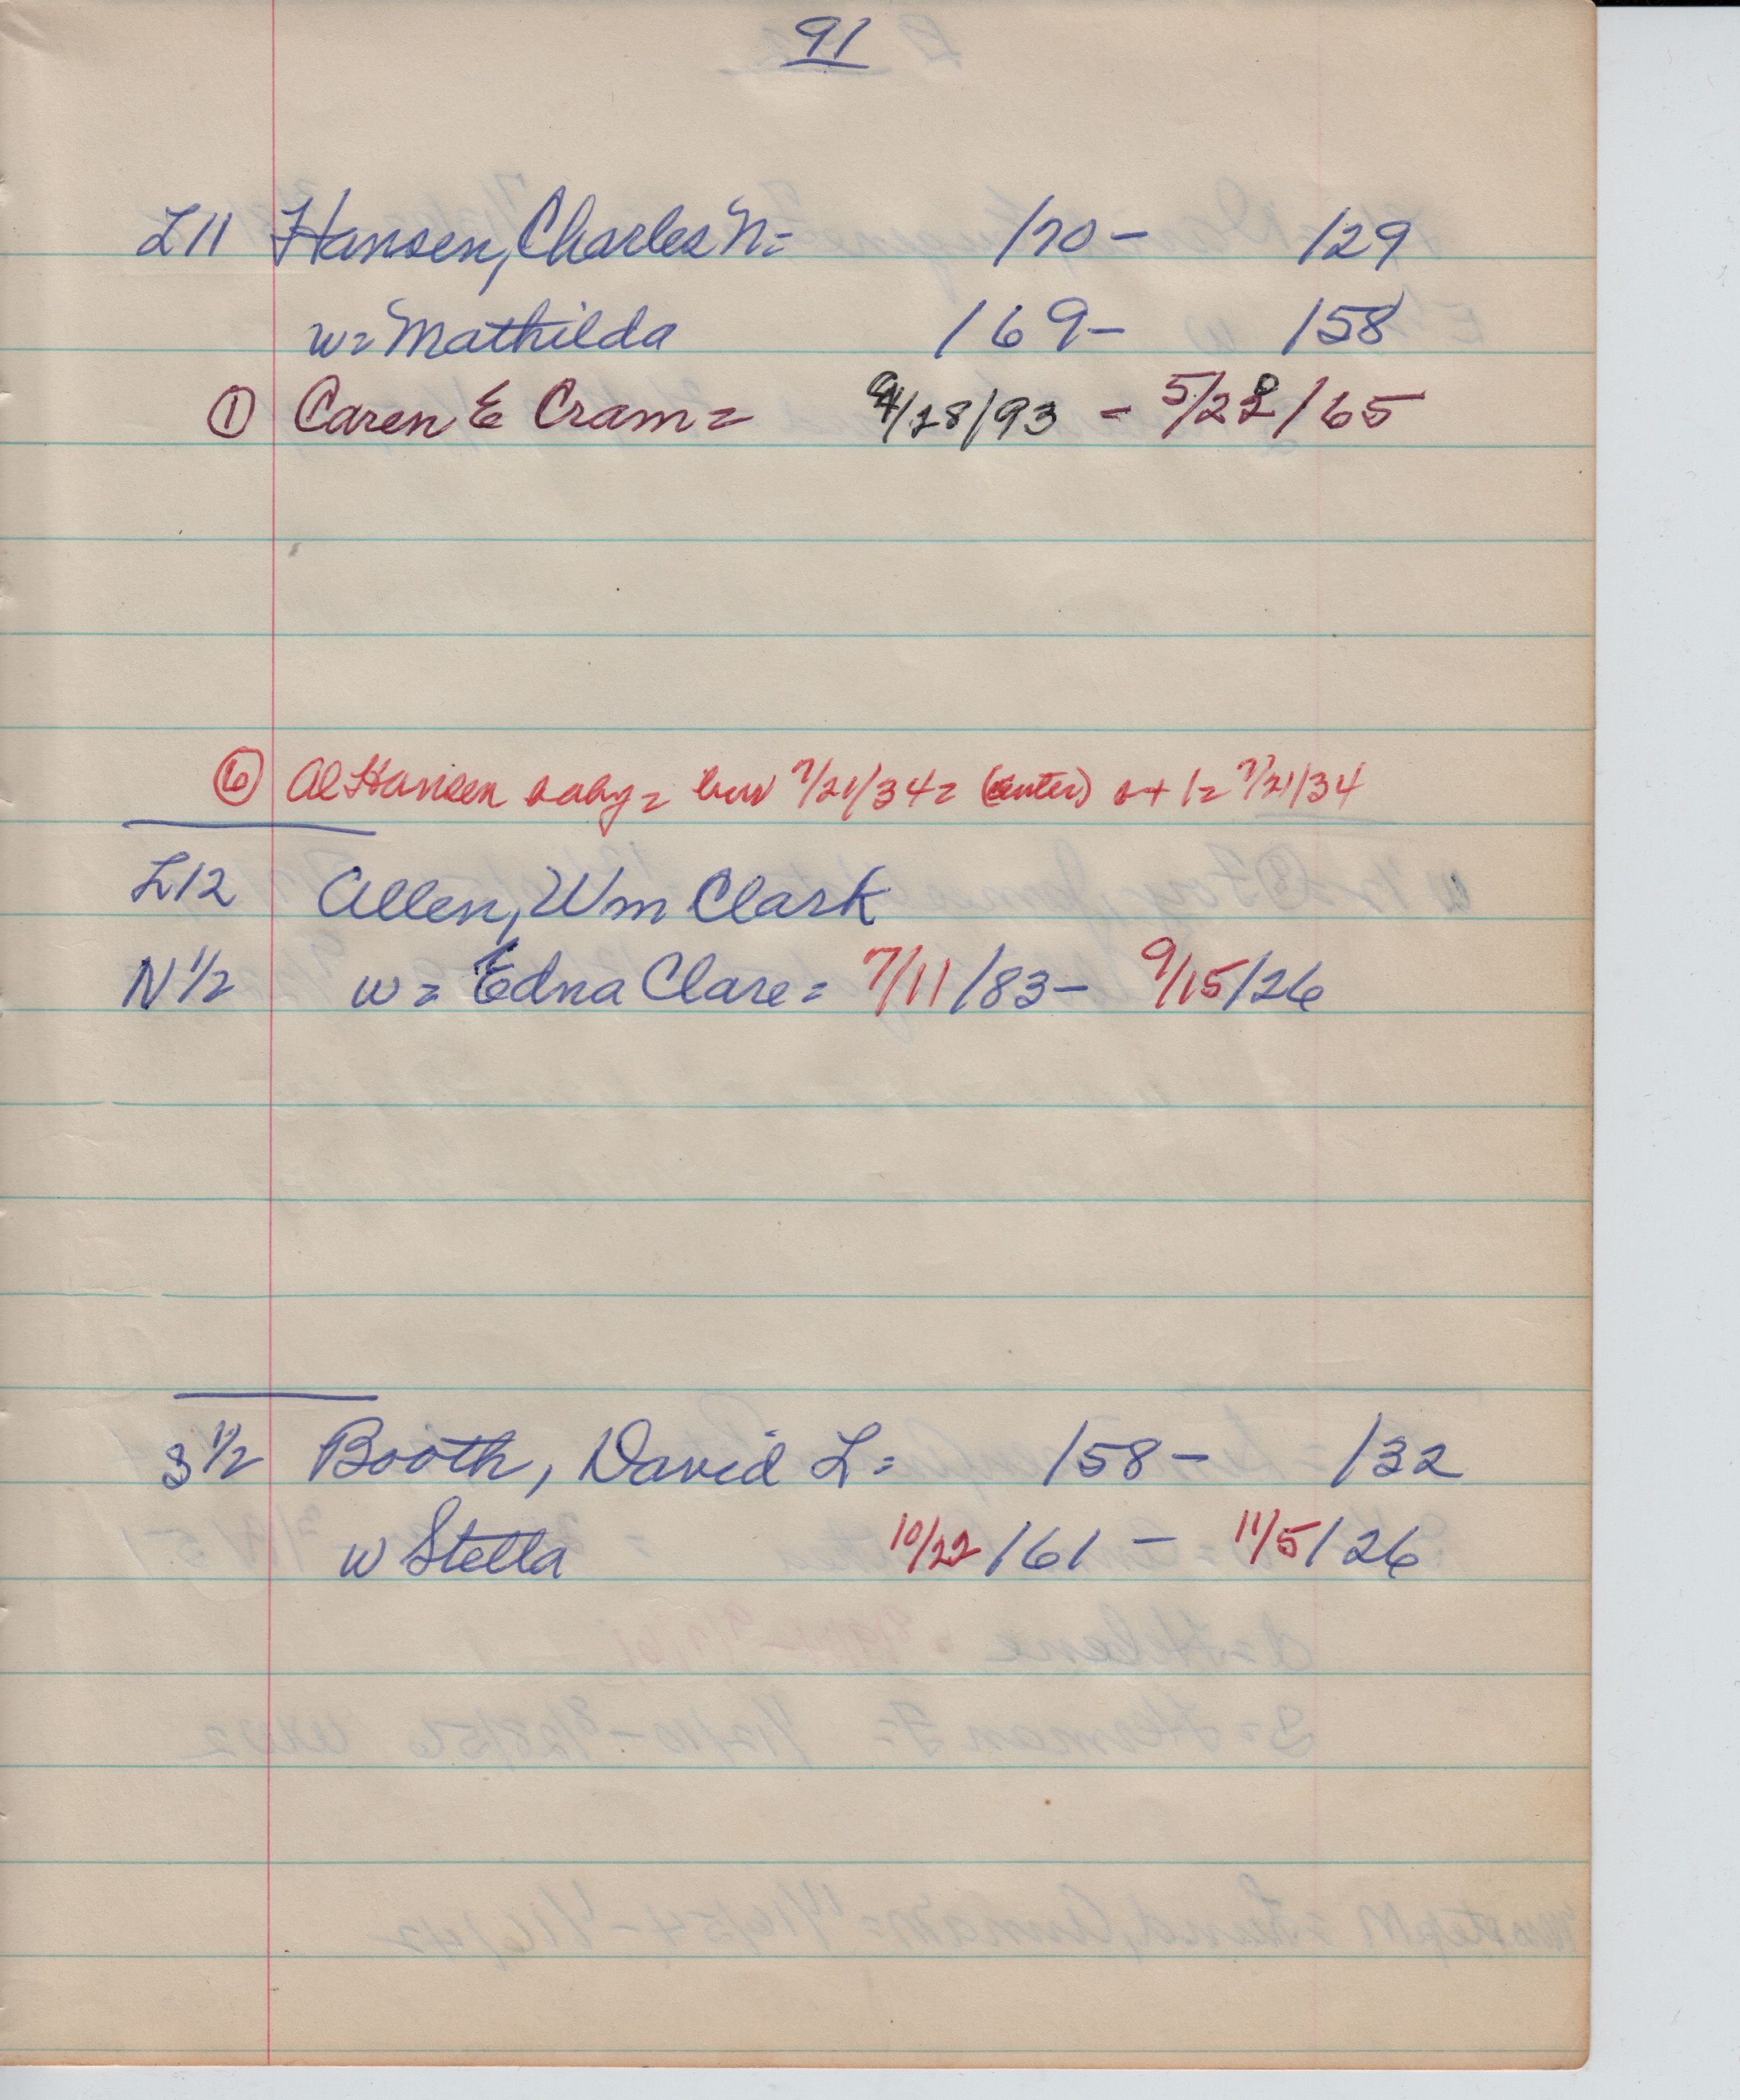 91
L11 Hansen, Charles N= /70- /29
w= Mathilda /69- /58
① Caren E Cram= /28/93 - 5/22/65
⑥ Al Hansen baby= 7/21/34= (center) at 1= 7/21/34
L12 Allen, Wm Clark
N 1/2 w= Edna Clare= 7/11/83- 9/15/26
S 1/2 Booth, David L= /58- /32
w Stella 10/22/61 - 11/5/26